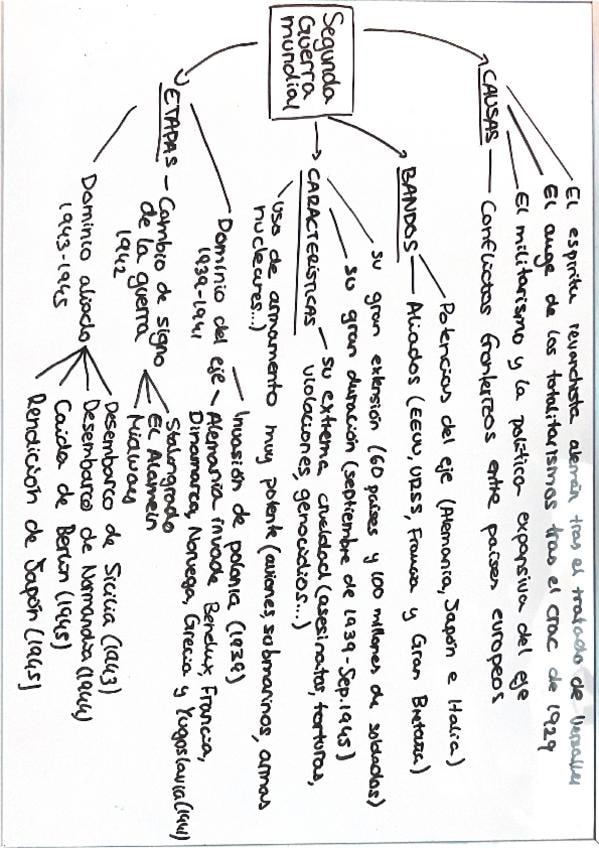 Segunda
Guerra
mundial
CAUSAS
El espíritu revanchista alemán tras el tratado de Versalles
El auge de los totalitarismos tras el crac de 1929
El militarismo y la política expansiva del eje
Conflictos fronterizos entre países europeos
BANDOS
Potencias del eje (Alemania, Japón e Italia)
Aliados (EEUU, URSS, Francia y Gran Bretaña)
CARACTERÍSTICAS
su gran extensión (60 países y 100 millones de soldados)
su gran duración (septiembre de 1939-Sep.1945)
su extrema crueldad (asesinatos, torturas,
violaciones, genocidios...)
uso de armamento muy potente (aviones, submarinos, armas
nucleares...)
ETAPAS
Dominio del eje
1939-1941
Invasión de polonia (1939)
Alemania invade Benelux, Francia,
Dinamarca, Noruega, Grecia y Yugoslavia (1941)
Cambio de signo
de la guerra
1942
Stalingrado
El Alamein
Midway
Dominio aliado
1943-1945
Desembarco de Sicilia (1943)
Desembarco de Normandía (1944)
Caída de Berlín (1945)
Rendición de Japón (1945)